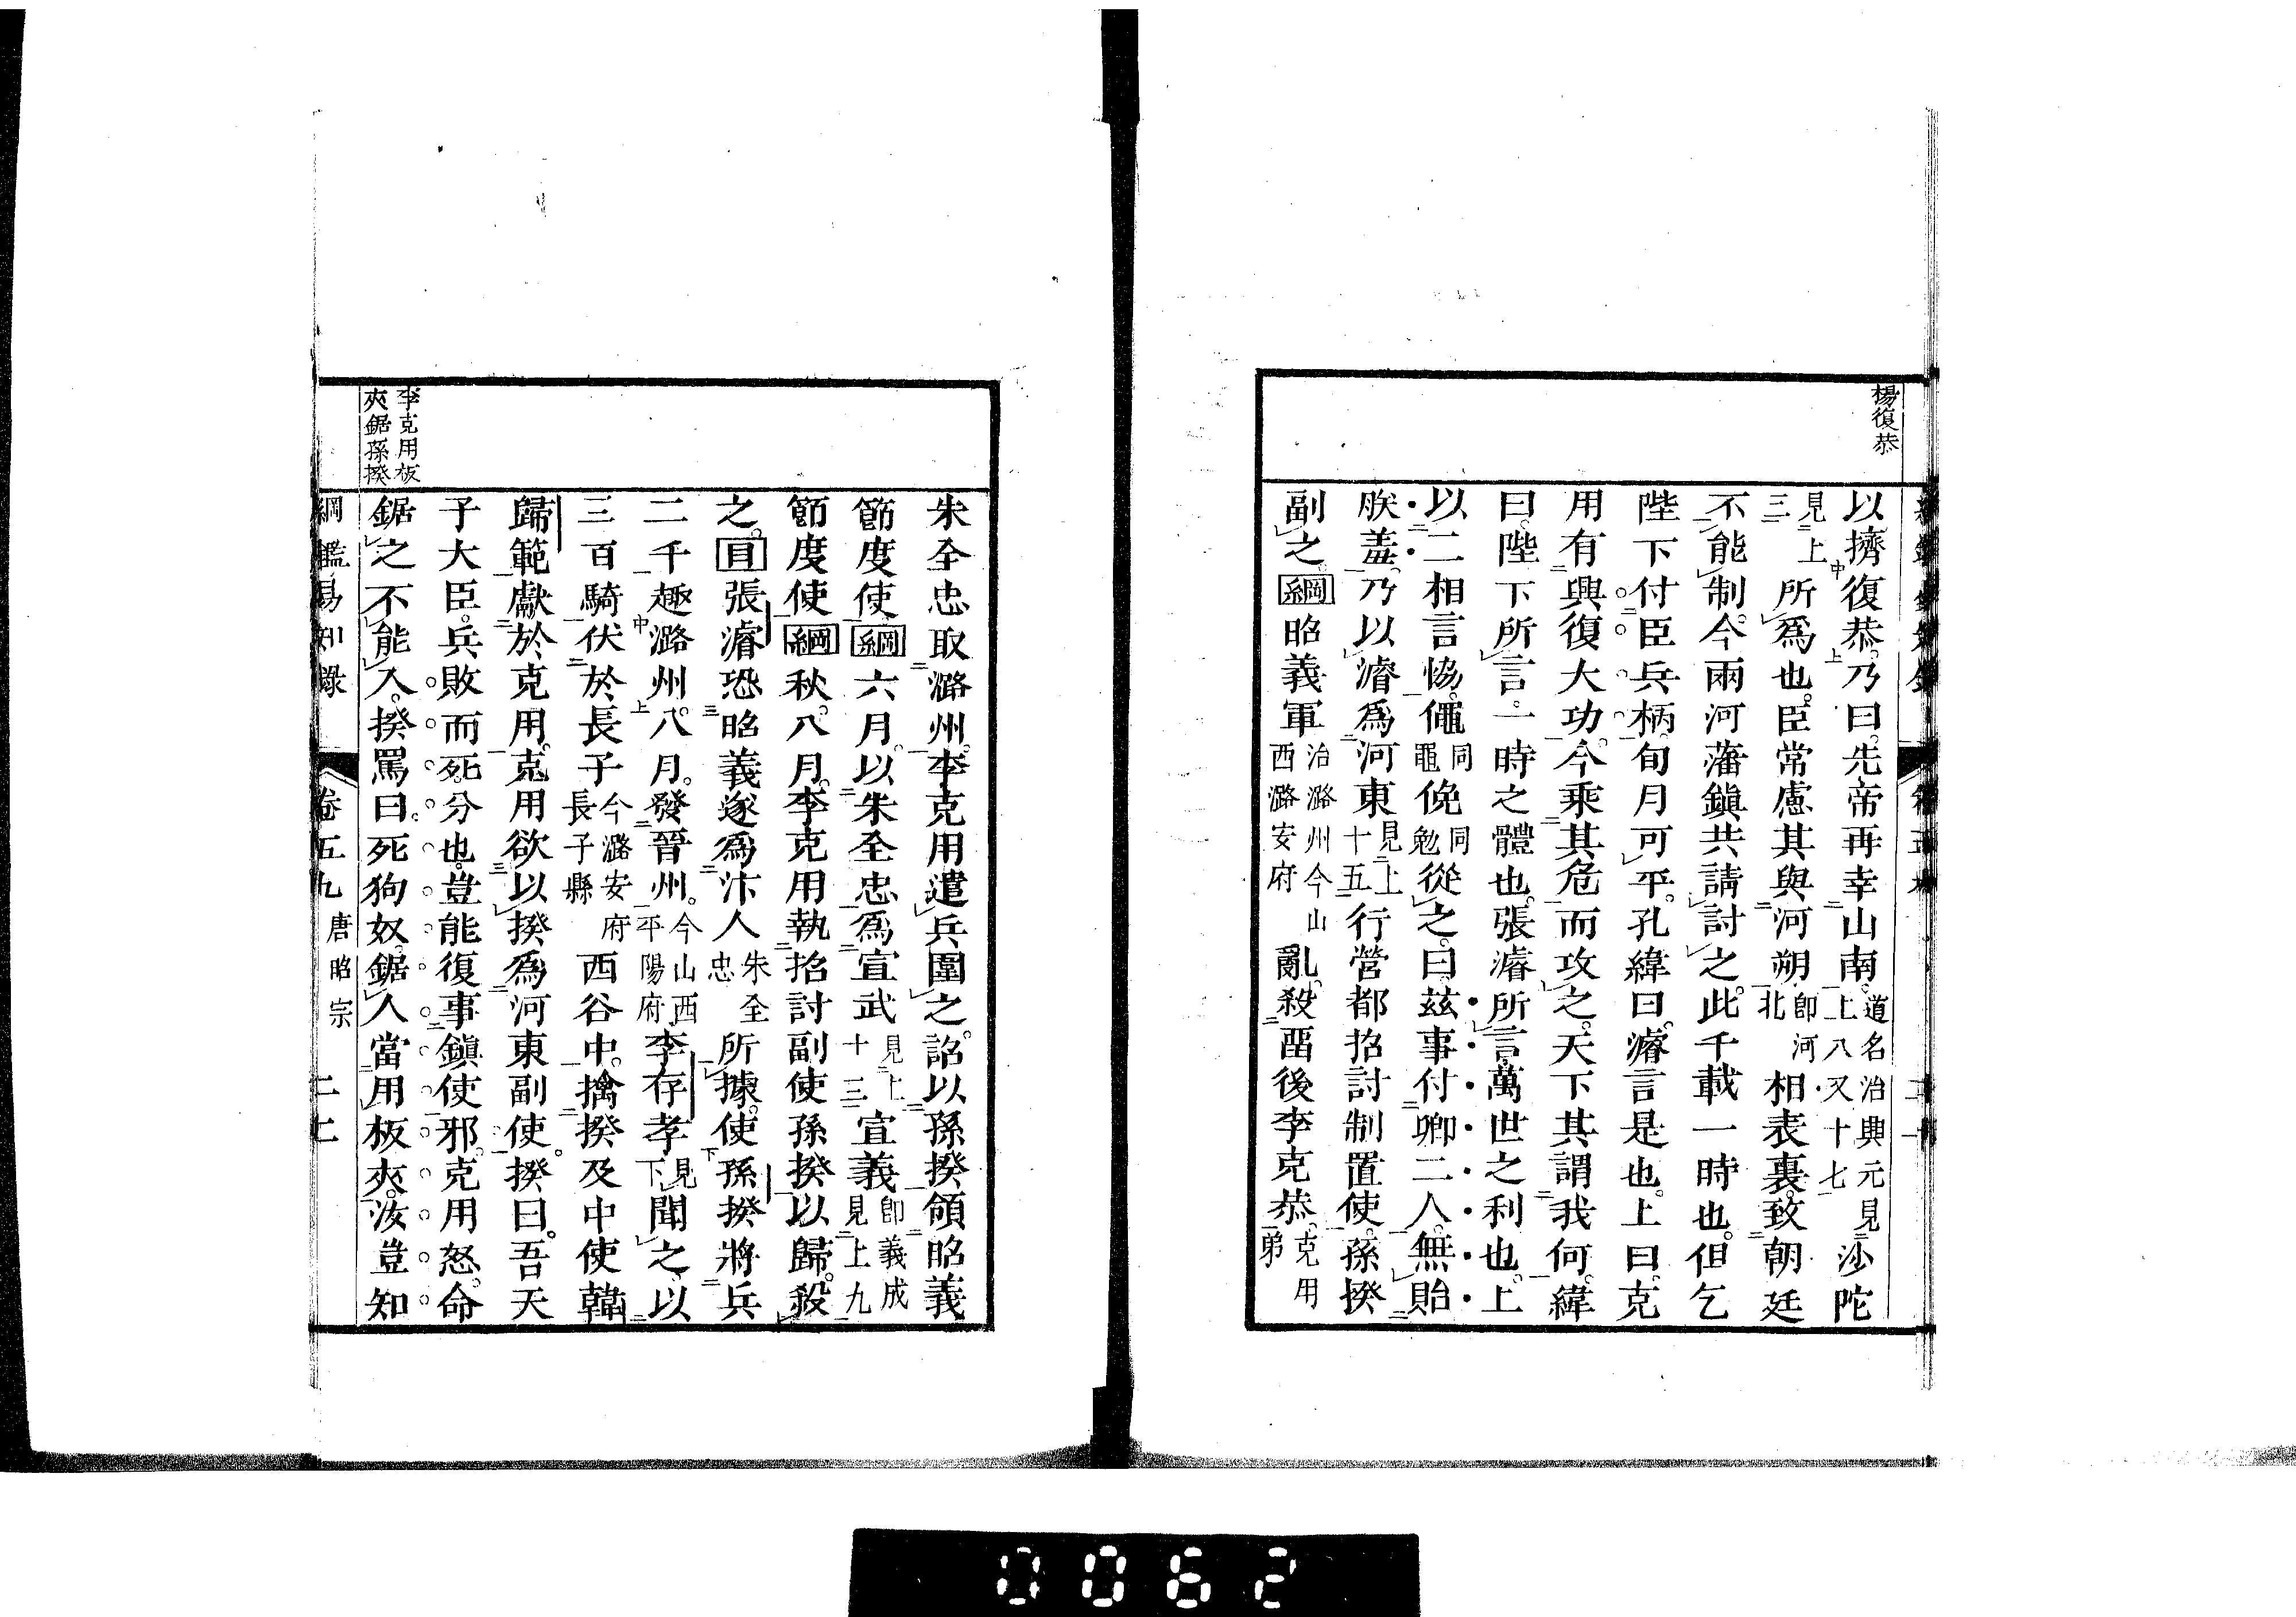 楊復恭
以擠復恭乃曰先帝再幸山南道名治興元見上八又十七沙陀
見上三所爲也臣常慮其與河朔卽河北相表裏致朝廷
不能制今兩河藩鎭共請討之此千載一時也但乞
陛下付臣兵柄旬月可平孔緯曰濬言是也上曰克
用有興復大功今乘其危而攻之天下其謂我何緯
曰陛下所言一時之體也張濬所言萬世之利也上
以二相言恊僶同黽俛同勉從之曰茲事付卿二人無貽
朕羞乃以濬爲河東見上十五行營都招討制置使孫揆
副之綱昭義軍治潞州今山西潞安府亂殺畱後李克恭克用弟
朱全忠取潞州李克用遣兵圍之詔以孫揆領昭義
節度使綱六月以朱全忠爲宣武見上十三宣義卽義成見上九
節度使綱秋八月李克用執招討副使孫揆以歸殺
之目張濬恐昭義遂爲汴人朱全忠所據使孫揆將兵
二千趣潞州八月發晉州今山西平陽府李存孝見下聞之以
三百騎伏於長子今潞安府長子縣西谷中擒揆及中使韓
歸範獻於克用克用欲以揆爲河東副使揆曰吾天
子大臣兵敗而死分也豈能復事鎭使邪克用怒命
鋸之不能入揆罵曰死狗奴鋸人當用板夾汝豈知
李克用板
夾鋸孫揆
綱鑑易知錄 卷五九 唐昭宗
0062